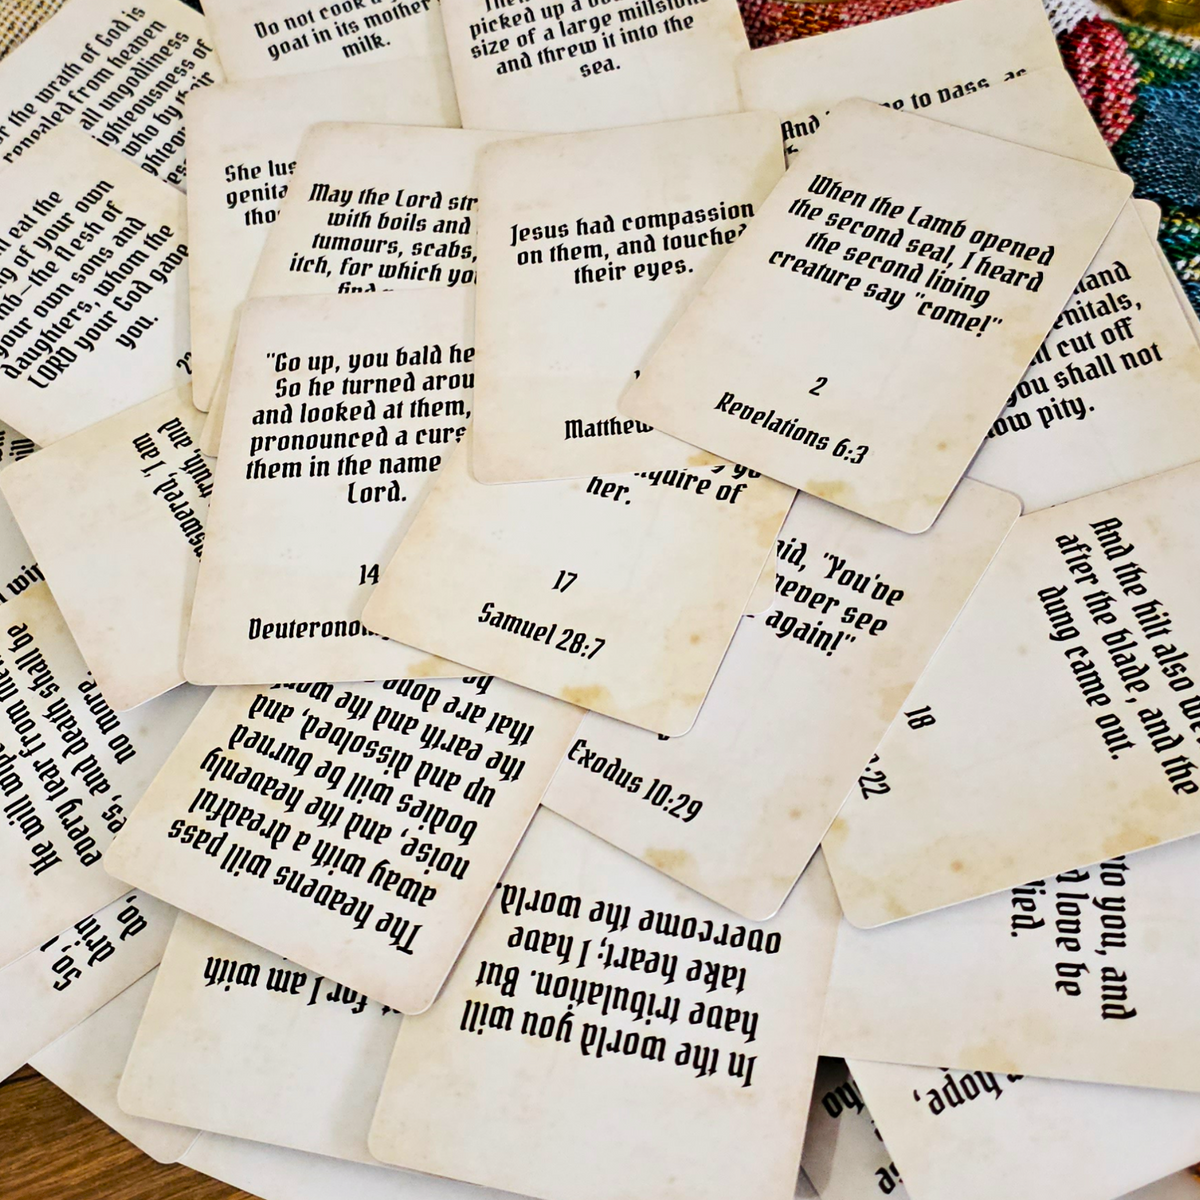 the wrath of God is
revealed from heaven
all ungodliness
who by their
Do not cook a
goat in its mother
milk.
picked up a
size of a large millstone
and threw it into the
sea.
And
to pass, as
eat the
of your own
the flesh of
your own sons and
daughters, whom the
LORD your God gave
you.
She
May the Lord
with boils and
tumours, scabs,
itch, for which
Jesus had compassion
on them, and touched
their eyes.
Matthew
When the Lamb opened
the second seal, I heard
the second living
creature say "come!"
2
Revelations 6:3
cut off
you shall not
pity.
"Go up, you bald
So he turned
and looked at them,
pronounced a
them in the name
Lord.
14
truth, and
I am
of
her.
17
Samuel 28:7
"You've
never see
again!"
Exodus 10:29
And the hilt also
after the blade, and the
dung came out.
18
:22
He will wipe
every tear from
and death shall be
no more
The heavens will pass
away with a dreadful
noise, and the heavenly
bodies will be burned
up and dissolved, and
the earth and the
that are done
So,
do,
for I am with
In the world you will
have tribulation. But
take heart; I have
overcome the world.
to you, and
love be
hope,